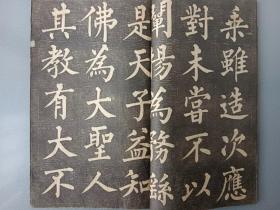 乘雖造次應
對未嘗不以
闡揚為務繇
是天子益知
佛為大聖人
其教有大不